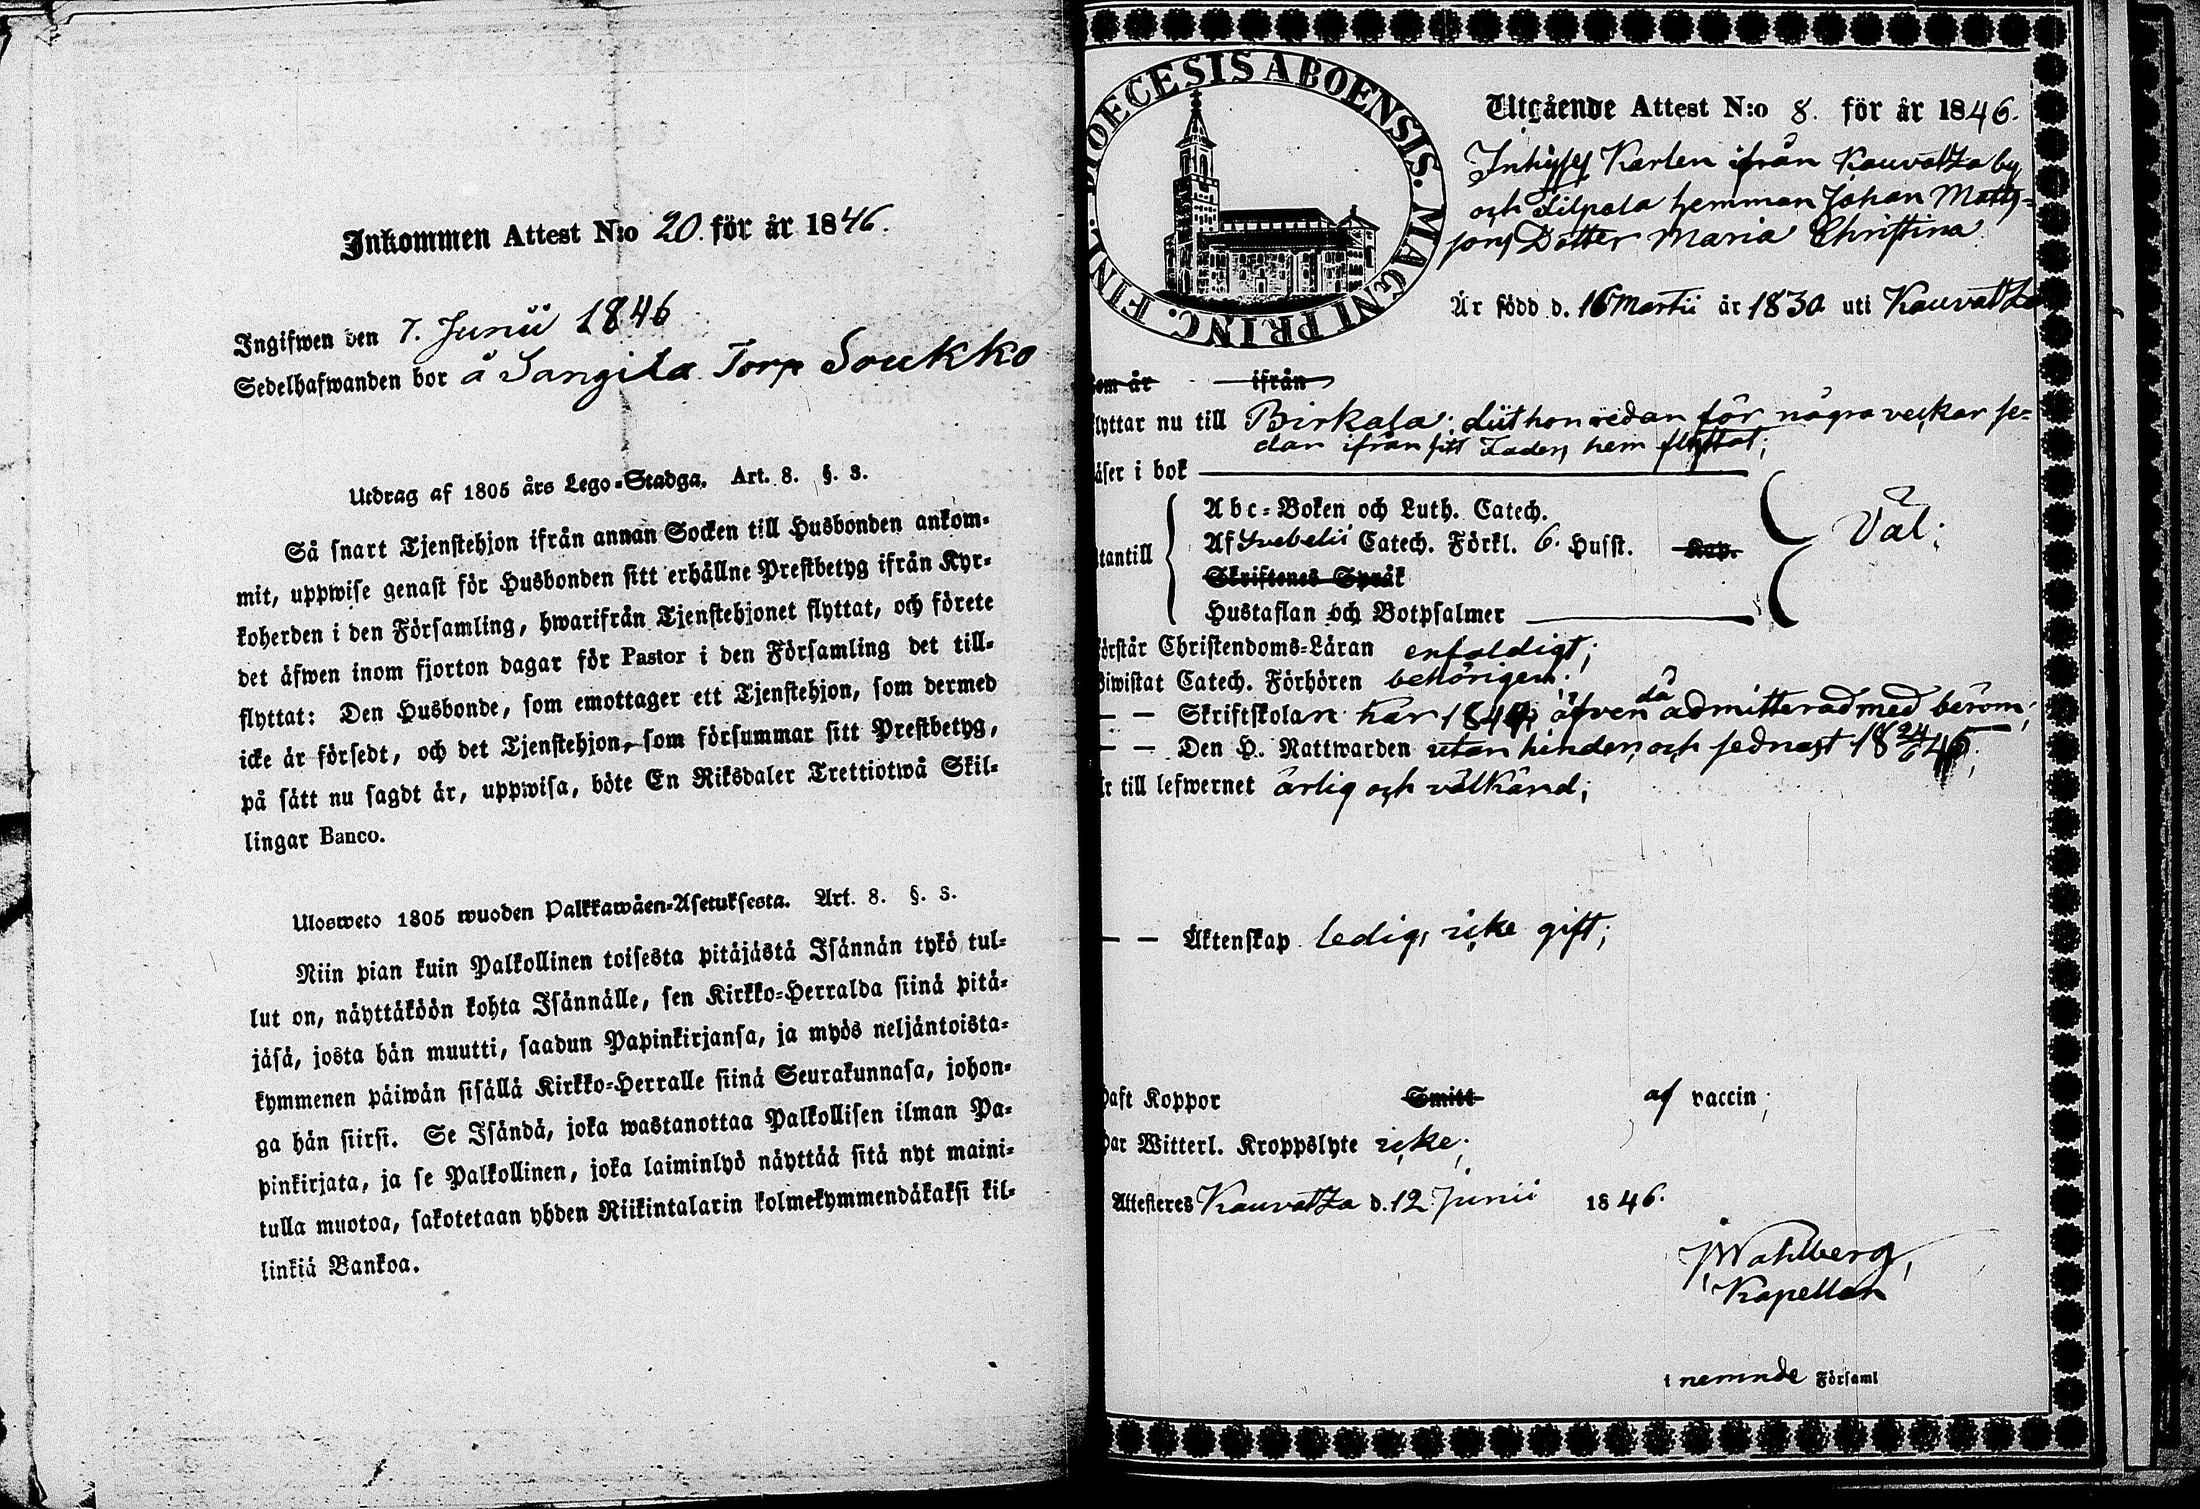 Inkommen Attest N:o 20. för år 1846.
Ingifwen den 7. Junii 1846
Sedelhafwanden bor å Sangila Torp Soukko
Utdrag af 1805 års Lego-Stadga. Art. 8. §. 3.
Så snart Tjenstehjon ifrån annan Socken till Husbonden ankom-
mit, uppwise genast för Husbonden sitt erhållne Prestbetyg ifrån Kyr-
koherden i den Församling, hwarifrån Tjenstehjonet flyttat, och förete
det äfwen inom fjorton dagar för Pastor i den Församling det till-
flyttat: Den Husbonde, som emottager ett Tjenstehjon, som dermed
icke är försedt, och det Tjenstehjon, som försummar sitt Prestbetyg,
på sätt nu sagdt är, uppwisa, böte En Riksdaler Trettiotwå Skil-
lingar Banco.
Ulosweto 1805 wuoden Palkkawäen-Asetuksesta. Art. 8. §. 3.
Niin pian kuin Palkollinen toisesta pitäjästä Isännän tykö tul-
lut on, näyttäköön kohta Isännälle, sen Kirkko-Herralda siinä pitä-
jäsä, josta hän muutti, saadun Papinkirjansa, ja myös neljäntoista-
kymmenen päiwän sisällä Kirkko-Herralle siinä Seurakunnasa, johon-
ga hän siirsi. Se Isändä, joka wastanottaa Palkollisen ilman Pa-
pinkirjata, ja se Palkollinen, joka laiminlyö näyttää sitä nyt maini-
tulla muotoa, sakotetaan yhden Riikintalarin kolmekymmendäkaksi kil-
linkiä Bankoa.
DIOECESIS ABOENSIS. MAGNI PRINC. FINL.
Utgående Attest N:o 8. för år 1846.
Inhyses Karlen ifrån Kauvatza by
och Filpala hemman Johan Matts-
sons Dotter Maria Christina
Är född d. 16 Martii år 1830 uti Kauvatza
som är ifrån
lyttar nu till Birkala; dit hon redan för några veckor se-
dan ifrån sitt Faders hem flyttat;
äser i bok
tantill
Abc-Boken och Luth. Catech.
Af Svebelii Catech. Förkl. 6. Husst. Kap.
Skriftenes Språk
Hustaflan och Botpsalmer
Väl;
örstår Christendoms-Läran enfaldigt;
iwistat Catech. Förhören behörigen.
— — Skriftskolan har 1844, äfven då admitterad med beröm;
— — Den H. Nattwarden utan hinder, och sednast 18 24/6 45;
r till lefwernet ärlig och välkänd;
— — Äktenskap ledig, icke gift;
aft Koppor Smitt af vaccin;
ar Witterl. Kroppslyte icke;
Attesteres Kauvatza d. 12. Junii 1846.
J Wahlberg,
Kapellan
i nemnde Församl